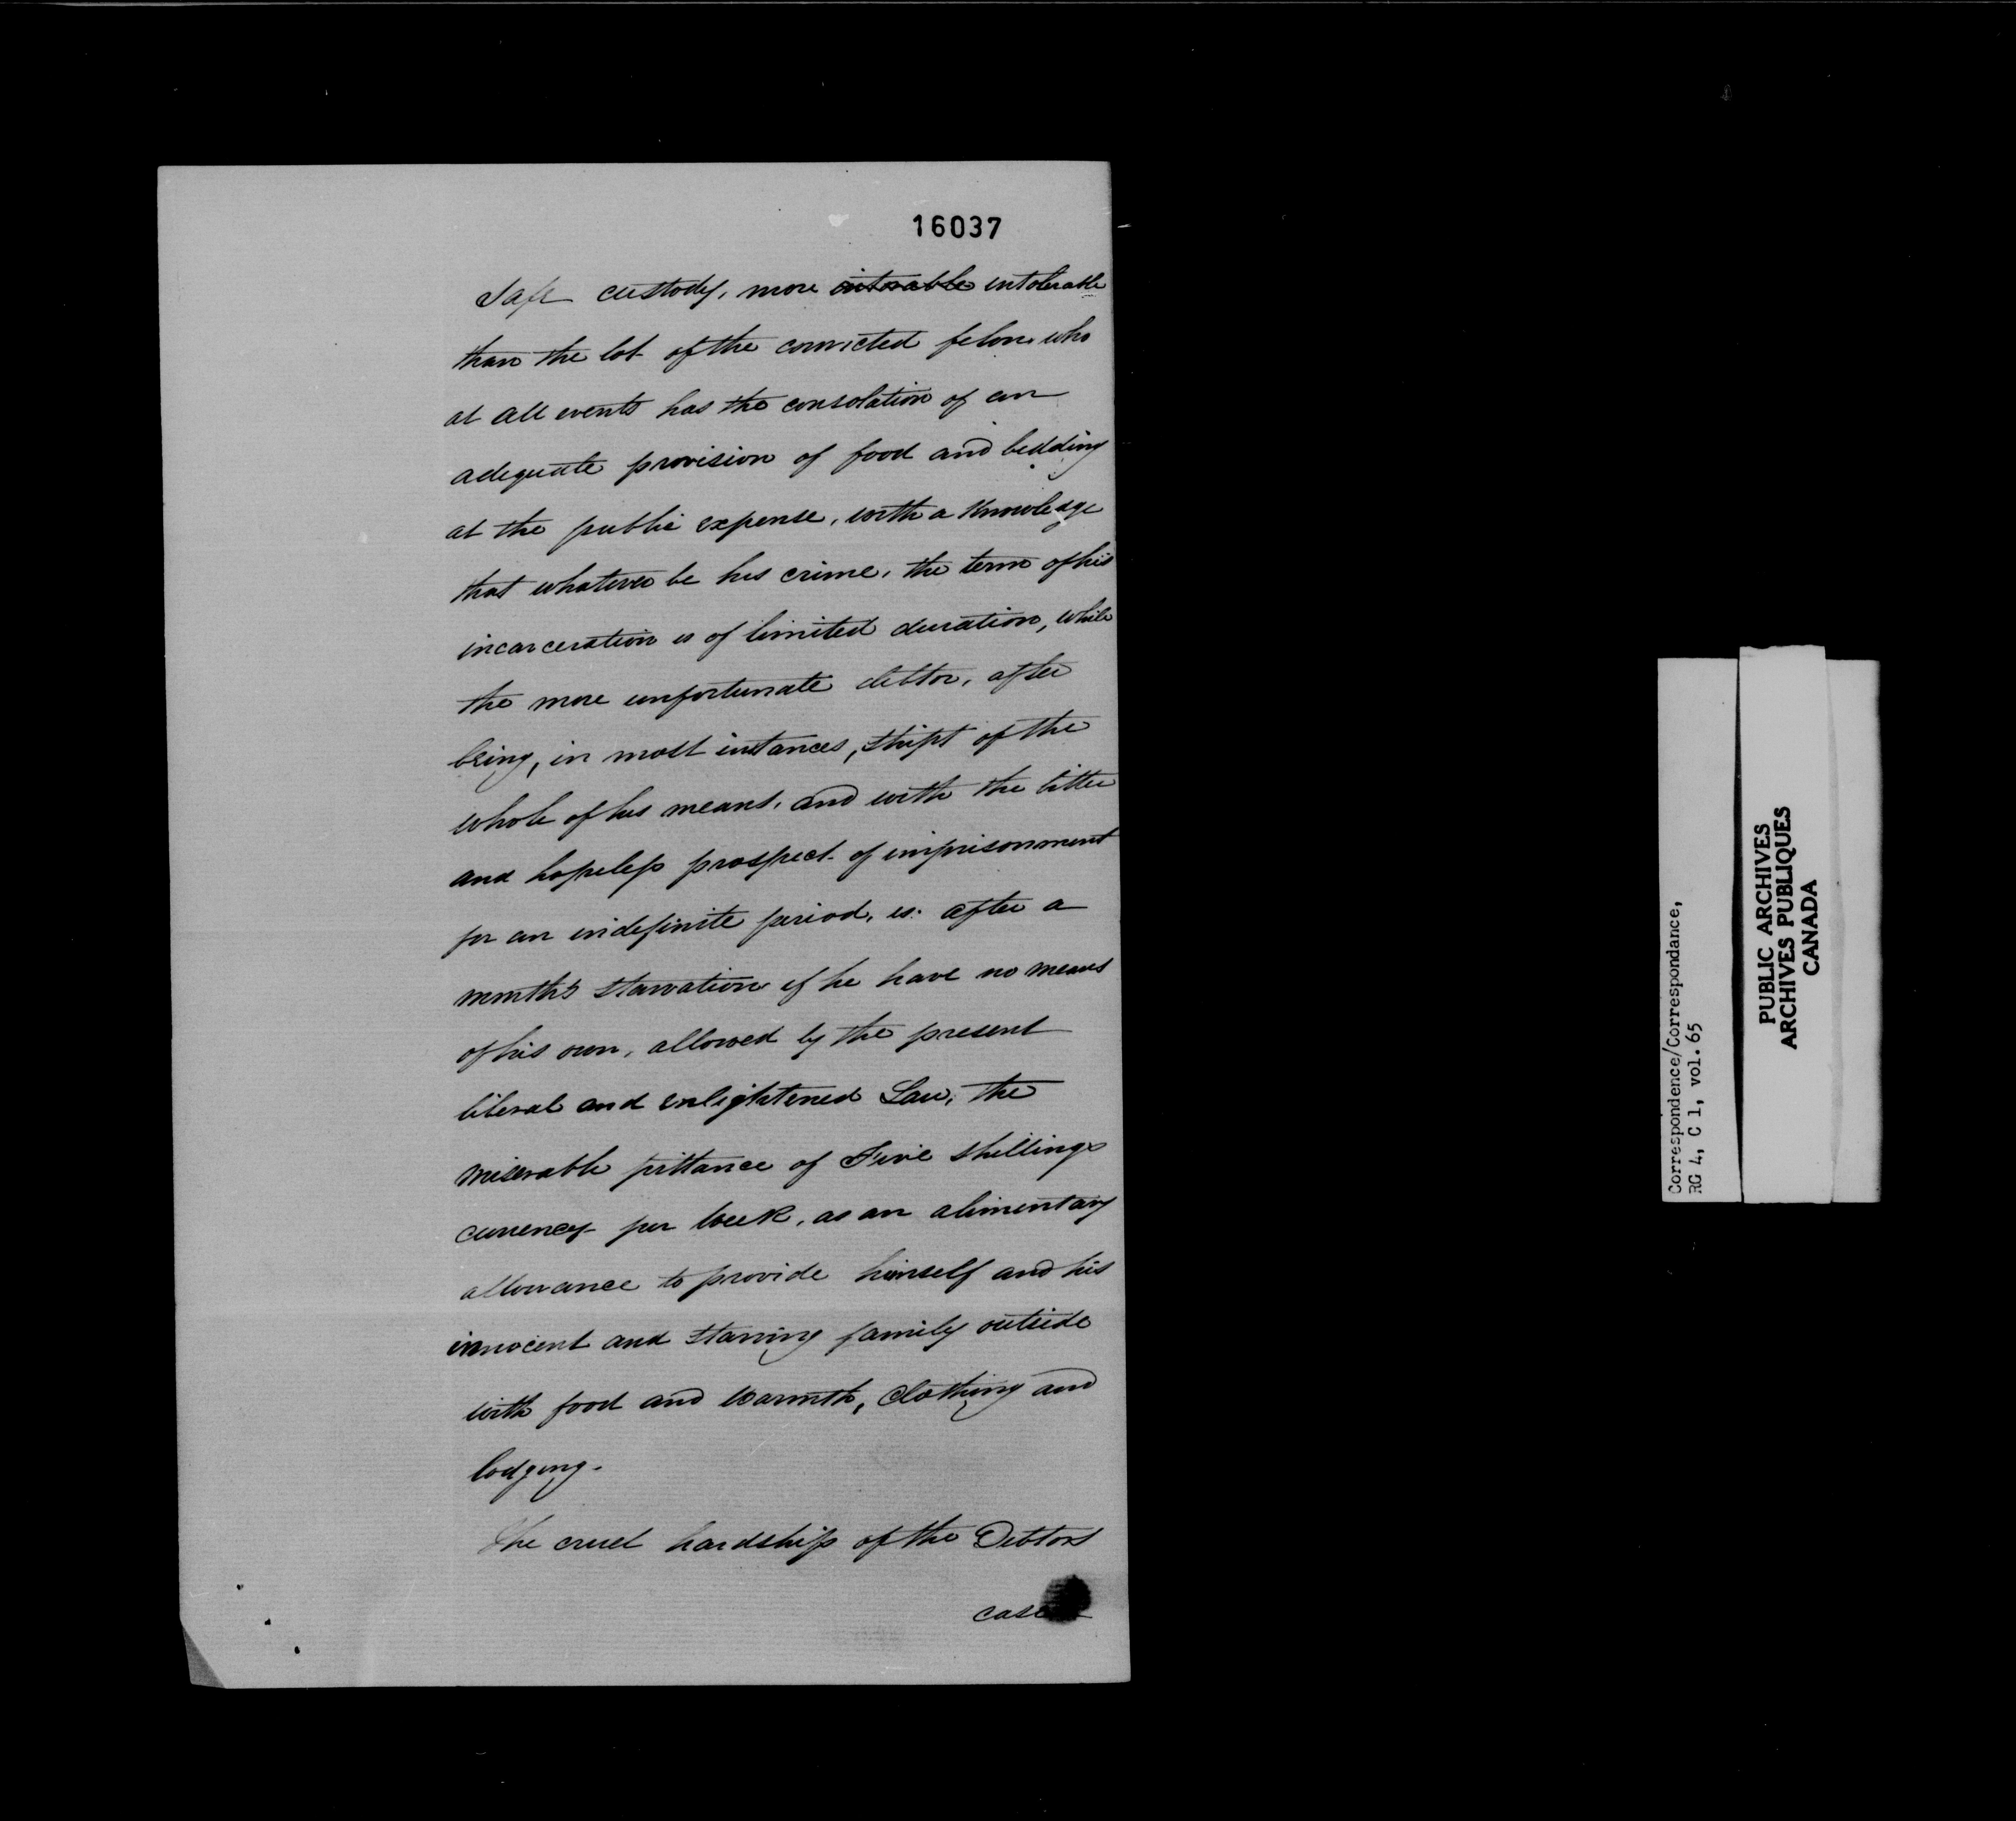 16037
Safe custody, more intorable intolerable
than the lot of the convicted felon who
at all events has the consolation of an
adequate provision of food and bedding
at the public expense, with a knowledge
that whatever be his crime, the term of his
incarceration is of limited duration, while
the more unfortunate debtor, after
being, in most instances, stript of the
whole of his means, and with the bitter
and hopeless prospect of imprisonment
for an indefinite period, is. after a
months starvation if he have no means
of his own, allowed by the present
liberal and enlightened Law, the
miserable pittance of Five shillings
currency per week, as an alimentary
allowance to provide himself and his
innocent and starving family outside
with food and warmth, clothing and
lodging.
The cruel hardship of the Debtors
case
Correspondence/Correspondance,
RG 4, C 1, vol. 65
PUBLIC ARCHIVES
ARCHIVES PUBLIQUES
CANADA